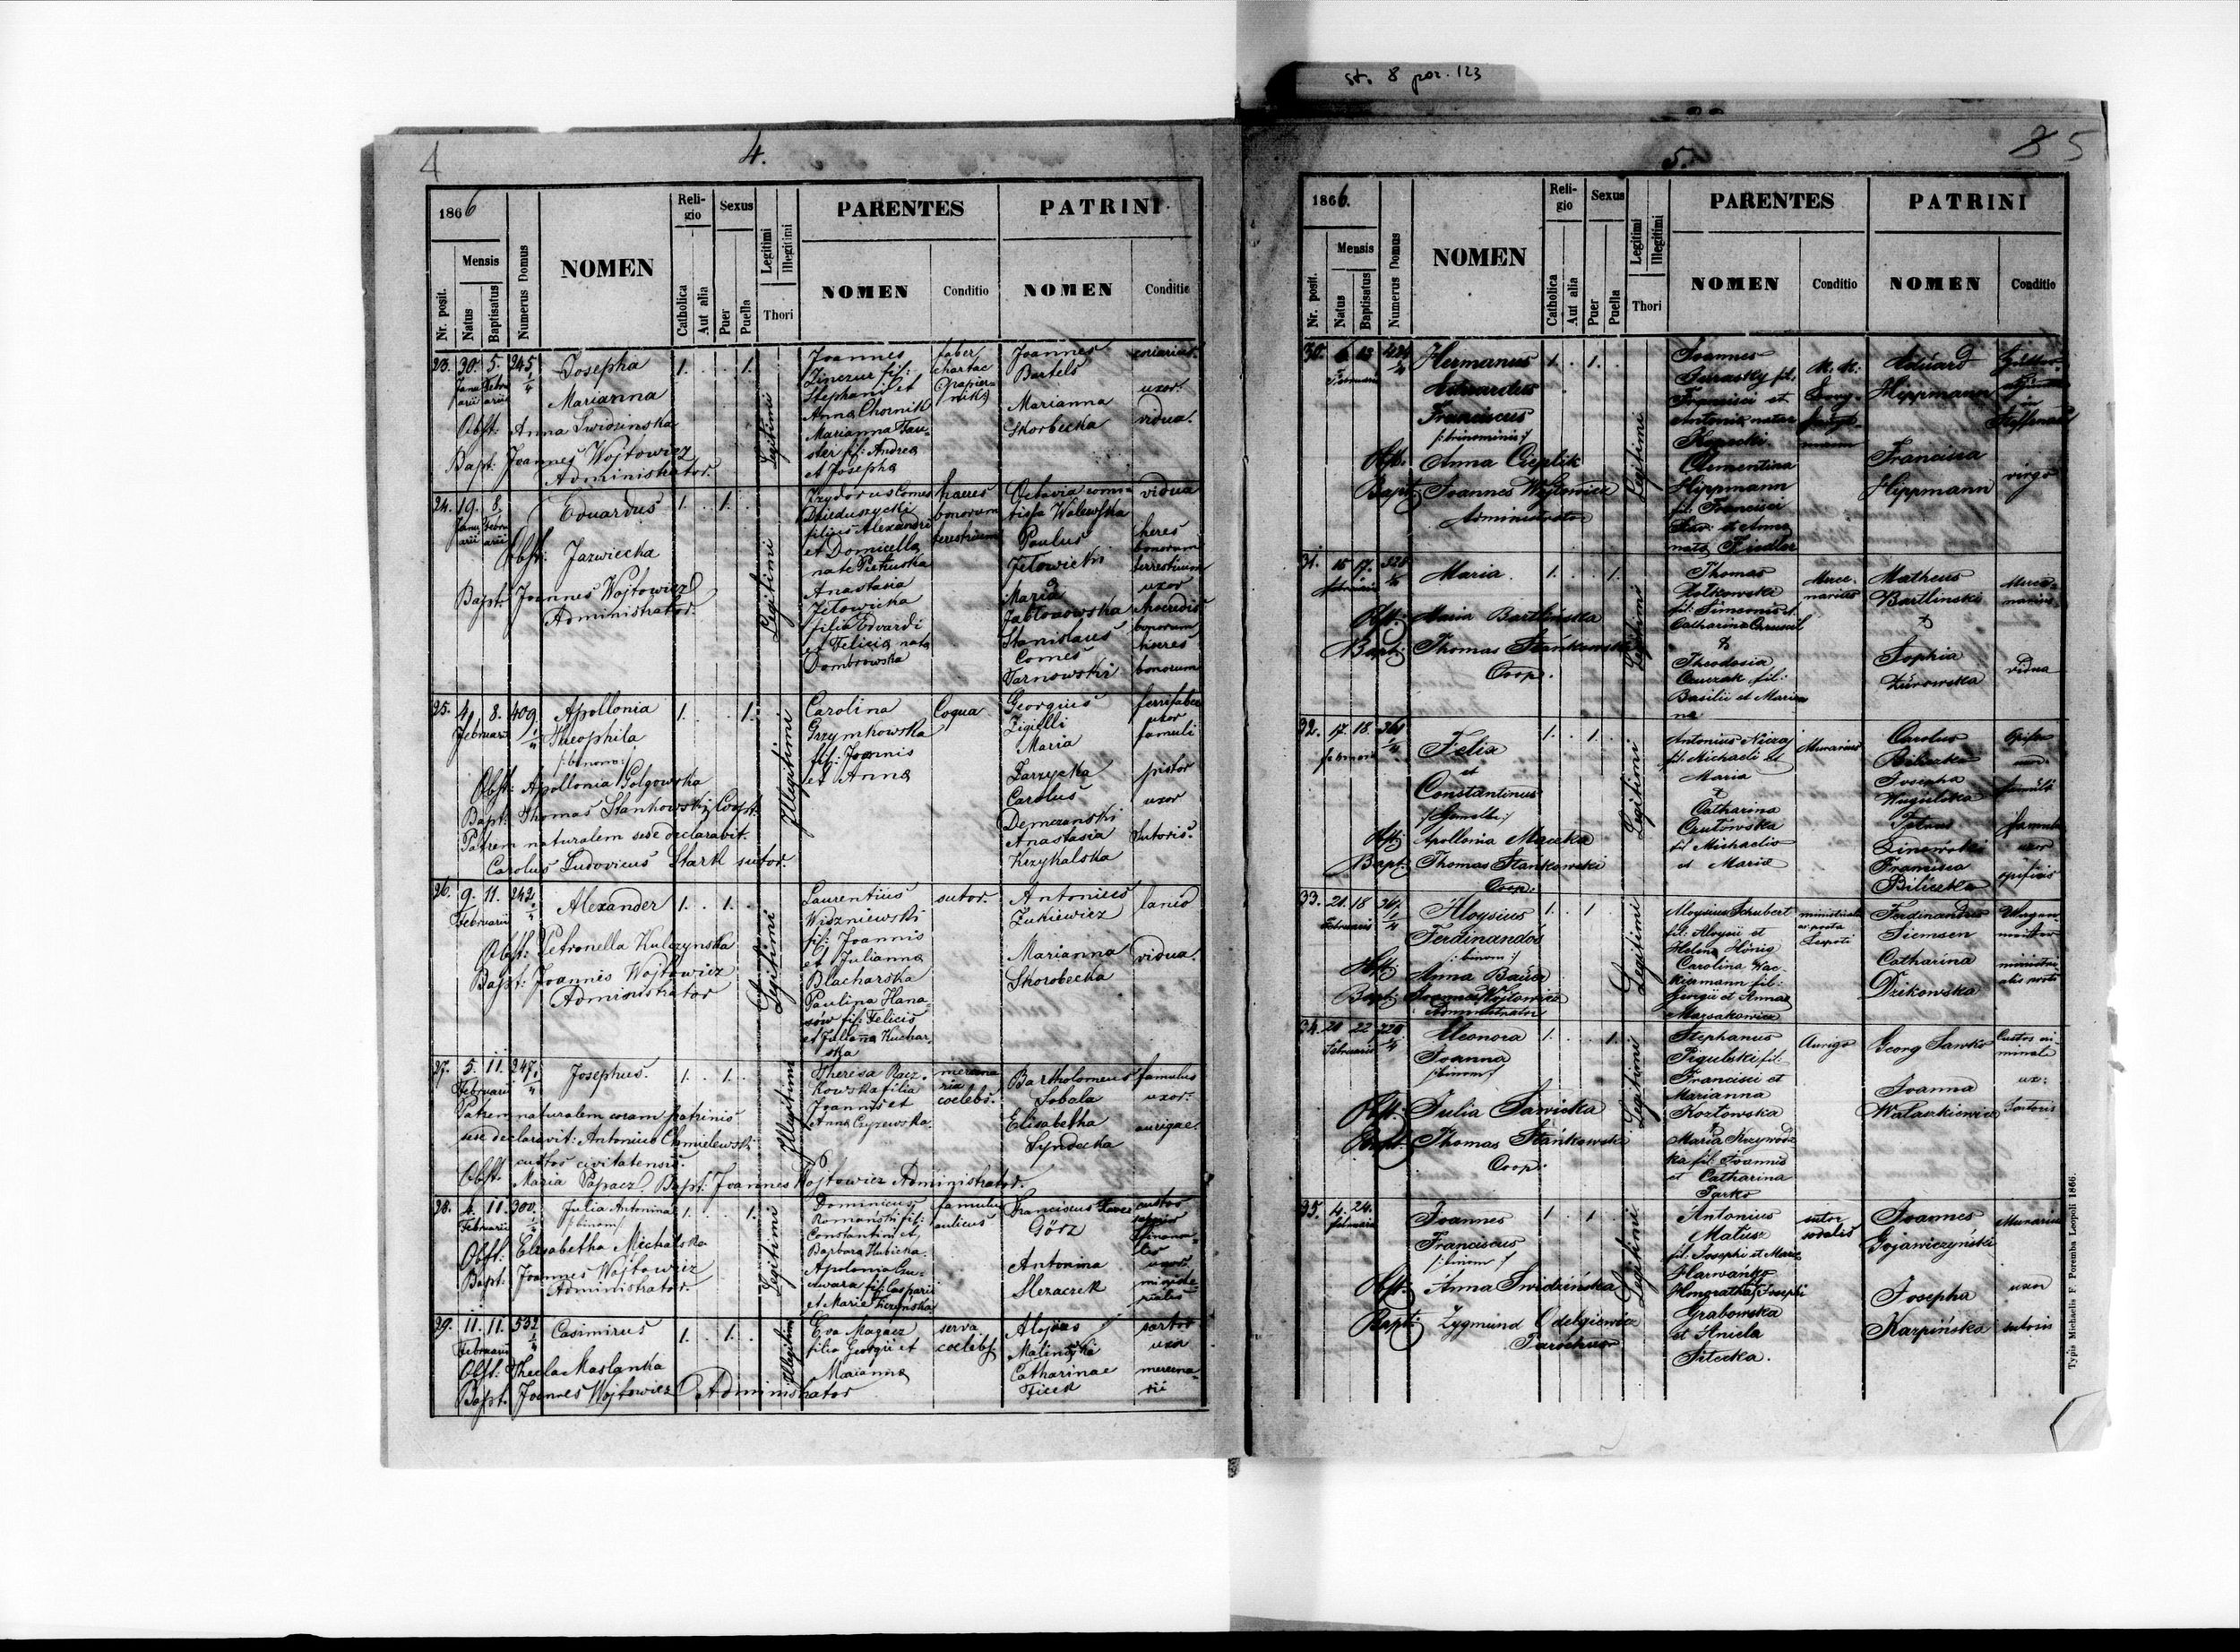 st. 8 poz. 123
4
4.
1866
Nr. posit.
Mensis
Natus
Baptisatus
Numerus Domus
NOMEN
Reli-
gio
Catholica
Aut alia
Sexus
Puer
Puella
Legitimi
Illegitimi
Thori
PARENTES
NOMEN
Conditio
PATRINI
NOMEN
Conditio
23. 30. 5. 245
Janu Febru
arii arii
1/4
Josepha
Marianna
Obst: Anna Swidzinska
Bapt: Joannes Wojtowicz
Administrator
1. . . 1.
Legitimi
Joannes
Zinczur fil:
Stephani et
Anna Chornik
Marianna Fau-
ster fil: Andrea
et Josepha
faber
chartae
(papier-
nik)
Joannes
Bartels
Marianna
Skorbecka
coriarius
uxor
vidua.
24. 19. 8.
Janu Febru
arii arii
Eduardus
Obst: Jazwiecka
Bapt: Joannes Wojtowicz
Administrator
1. . 1.
Legitimi
Izydorus Comes
Dzieduszycki
filius Alexandri
et Domicella
nate Pietruska
Anastasia
Jełowicka
filia Edvardi
et Felicia nata
Dombrowska
haeres
bonorum
terestrium
Octavia comi-
tissa Walewska
Paulus
Jełowicki
Maria
Jabłonowska
Stanislaus
Comes
Tarnowski
vidua
heres
bonorum
terrestrium
uxor
haeredis
bonorum
haeres
bonorum
25. 4. 8. 409
Februari
1/4
Apollonia
Theophila
/:binom:/
Obst: Apollonia Golgowska
Bapt: Thomas Stankowski Coop:
Patrem naturalem sese declaravit.
Carolus Ludovicus Stark sutor.
1. . . 1.
Illegitimi
Carolina
Grzymkowska
fil: Joannis
et Anna
Coqua
Georgius
Zigielli
Maria
Zarzycka
Carolus
Demczanski
Anastasia
Krzykalska
ferrifaber
uxor
famuli
pistor
uxor
sutoris.
26. 9. 11. 242
Februarii
1/4
Alexander
Obst: Petronella Kulczynska
Bapt: Joannes Wojtowicz
Administrator
1. . 1.
Legitimi
Laurentius
Wiszniewski
fil: Joannis
et Julianna
Blacharska
Paulina Hana-
sów fil: Felicis
et Julianna Kuchar-
ska
sutor.
Antonius
Żukiewicz
Marianna
Skorobecka
lanio
vidua.
27. 5. 11. 247.
Februarii
1/4
Josephus.
Patrem naturalem coram patrinis
sese declaravit: Antonius Chmielewski
custos civitatensis.
Obst. Maria Papacz. Bapt: Joannes Wojtowicz Administrator.
1. . 1.
Illegitimi
Theresa Racz-
kowska filia
Joannis et
Anna Czyzewska
mercena
ria
coelebs.
Bartholomeus
Sobala
Elisabetha
Syndecka
famulus
uxor.
aurigae
28. 6. 11. 300.
Februarii
1/4
Julia Antonina
/:binom:/
Obst: Elisabetha Michalska
Bapt: Joannes Wojtowicz
Administrator.
1. . . 1.
Legitimi
Dominicus
Romanski fil:
Constantini et
Barbara Hubicka
Apolonia
fil: Casparis
et Marie
famulus
aulicus
Franciscus Xaver
Görz
Antonina
Slezaczek
custos
uxor
29. 11. 11. 532
Februarii
1/4
Casimirus
Obst: Thecla Maslanka
Bapt: Joannes Wojtowicz Administrator
1. . 1.
Illegitimi
Eva Magacz
filia Georgii et
Marianna
serva
coelebs.
Alojsius
Malinowski
Catharinae
Ficek
sartor
uxor
mercena-
rii
8 5
5.
1866.
Nr. posit.
Mensis
Natus
Baptisatus
Numerus Domus
NOMEN
Reli-
gio
Catholica
Aut alia
Sexus
Puer
Puella
Legitimi
Illegitimi
Thori
PARENTES
NOMEN
Conditio
PATRINI
NOMEN
Conditio
30. 6 13
Februarii
1/4
Hermanus
Eduardus
Franciscus
/:trinominis:/
Obst. Anna Cieplik
Bapt: Joannes Wojtowicz
Administrator
1. . 1.
Legitimi
Joannes
fil:
Francisci et
Antonia nata
Clementina
Hippmann
fil: Francisci
et Anna
nata Fiedler
Eduard
Hippmann
Francisca
Hippmann
in
virgo
31. 15 17.
Februarii
Maria.
Obst: Maria Bartlinska
Bapt: Thomas Stankowski
Coop.
1. . . 1.
Legitimi
Thomas
Zołkowski
fil: Simeonis et
Catharina
&
Theodosia
fil:
Basilii et Marian
na
Merce-
narius
Matheus
Bartlinski
&
Sophia
Żurowska
Merce-
narius
vidua
32. 17 18. 361
Februarii
1/4
Felix
et
Constantinus
/:Gemelli:/
Obst: Apollonia
Bapt: Thomas Stankowski
Coop:
1. . 1.
Legitimi
Antonius
fil: Michaeli et
Maria
&
Catharina
fil Michaelis
et Maria
Murarius
Carolus
Biliczka
Josepha
Petrus
Zinowski
Francisca
Biliczka
famuli
famulus
uxor
opificis
33. 21 18
Februarii
1/4
Aloysius
Ferdinandus
/:binom:/
Obst: Anna Bauer
Bapt: Joannes Wojtowicz
Administrator
1. . 1
Legitimi
Aloysius Schubert
fil: Aloysii et
Helena Hönig
Carolina Wac-
kermann fil:
Georgii et Anna
Marsakowicz
Ferdinandus
Siemsen
Catharina
Dzikowska
34. 20 22 220
Februarii
1/4
Eleonora
Joanna
/:binom:/
Obst: Julia Sawicka
Bapt: Thomas Stankowski
Coop:
1. . . 1.
Legitimi
Stephanus
Pigulski fil:
Francisci et
Marianna
Kozłowska
&
Maria Krzywodz
ka fil: Joannis
et Catharina
Parko
Auriga
Georg Sawko
Joanna
Walaszkiewicz
Custos cri-
minali
ux:
Sartoris
35. 4. 24.
Februarii
Joannes
Franciscus
/:binom:/
Obst: Anna Swidzińska
Bapt: Zygmund Odelgiewicz
Parochus
1 . 1
Legitimi
Antonius
Matiisz
fil: Josephi et Maria
Harwańko
Honoratha Josephi
Grabowska
et Aniela
Sitecka.
sutor
sodalis
Joannes
Gojawiczyński
Josepha
Karpińska
Murarius
uxor
sutoris
Typis Michaelis F. Poremba Leopoli 1866.